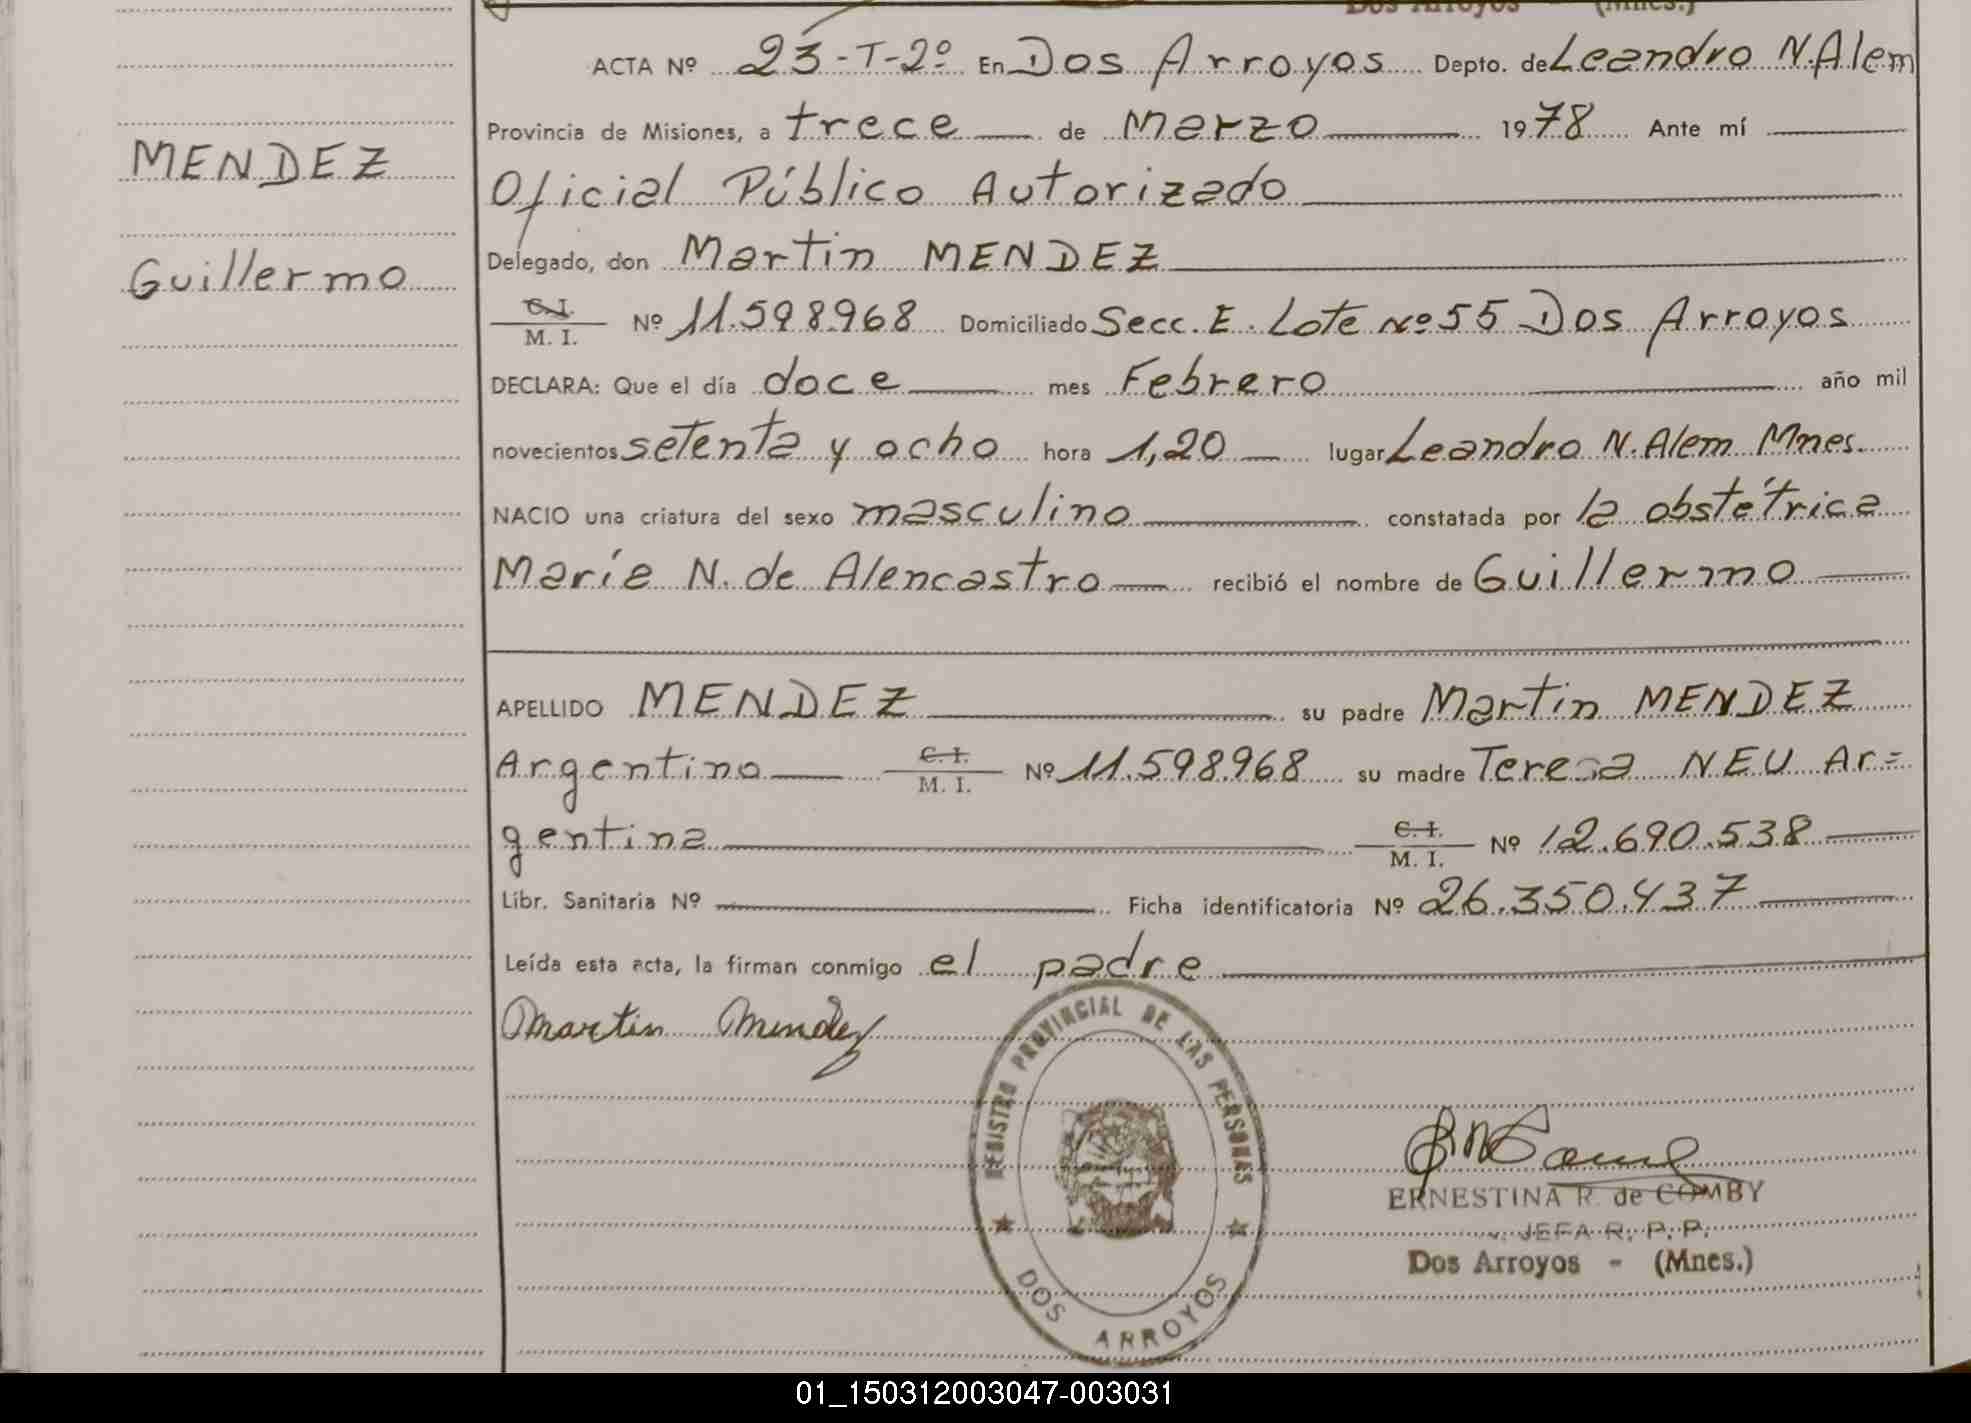 Dos Arroyos - (Mnes.)
ACTA Nº 23-T-2º En Dos Arroyos Depto. de Leandro N. Alem
Provincia de Misiones, a trece de Marzo 1978 Ante mí
MENDEZ
Oficial Público Autorizado
Delegado, don Martin MENDEZ
Guillermo
C.I. / M. I. Nº 11.598.968 Domiciliado Secc. E. Lote Nº 55 Dos Arroyos
DECLARA: Que el día doce mes Febrero año mil
novecientos setenta y ocho hora 1,20 lugar Leandro N. Alem Mnes.
NACIO una criatura del sexo masculino constatada por la obstétrica
María N. de Alencastro recibió el nombre de Guillermo
APELLIDO MENDEZ su padre Martin MENDEZ
Argentino C.I. / M. I. Nº 11.598.968 su madre Teresa NEU Ar=
gentina C.I. / M. I. Nº 12.690.538
Libr. Sanitaria Nº Ficha identificatoria Nº 26.350.437
Leída esta acta, la firman conmigo el padre
Martin Mendez
REGISTRO PROVINCIAL DE LAS PERSONAS
DOS ARROYOS
ERNESTINA R. de COMBY
JEFA R. P. P.
Dos Arroyos - (Mnes.)
01_150312003047-003031